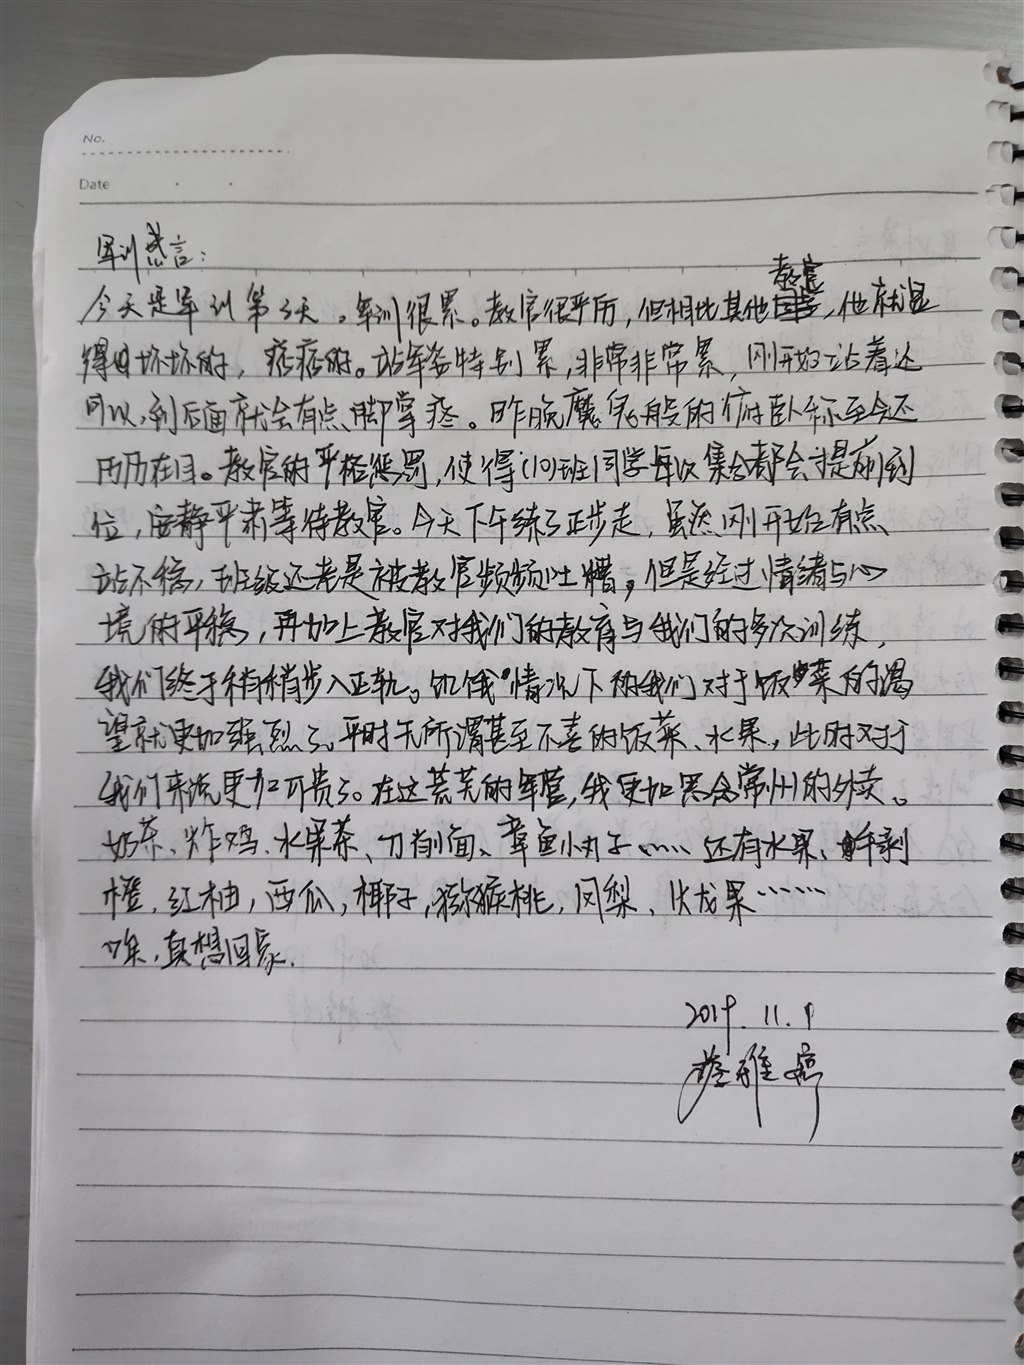 No.
Date
军训感言：
教官
今天是军训第3天。军训很累。教官很严厉，但相比其他，他就显
得坏坏的，痞痞的。站军姿特别累，非常非常累，刚开始站着还
可以，到后面就会有点脚掌疼。昨晚魔鬼般的俯卧称至今还
历历在目。教官的严格惩罚，使得(10)班同学每次集合都会提前到
位，安静严肃等待教官。今天下午练了正步走，虽然刚开始有点
站不稳，班级还老是被教官频频吐槽，但是经过情绪与心
境的平稳，再加上教官对我们的教育与我们的多次训练，
我们终于稍稍步入正轨。饥饿情况下的我们对于饭菜的渴
望就更加强烈了。平时无所谓甚至不喜的饭菜、水果，此时对于
我们来说更加可贵了。在这荒芜的军营，我更加思念常州的外卖。
奶茶、炸鸡、水果茶、刀削面、章鱼小丸子…… 还有水果、手剥
橙，红柚，西瓜，椰子，猕猴桃，凤梨、火龙果……
唉，真想回家.
2019.11.9